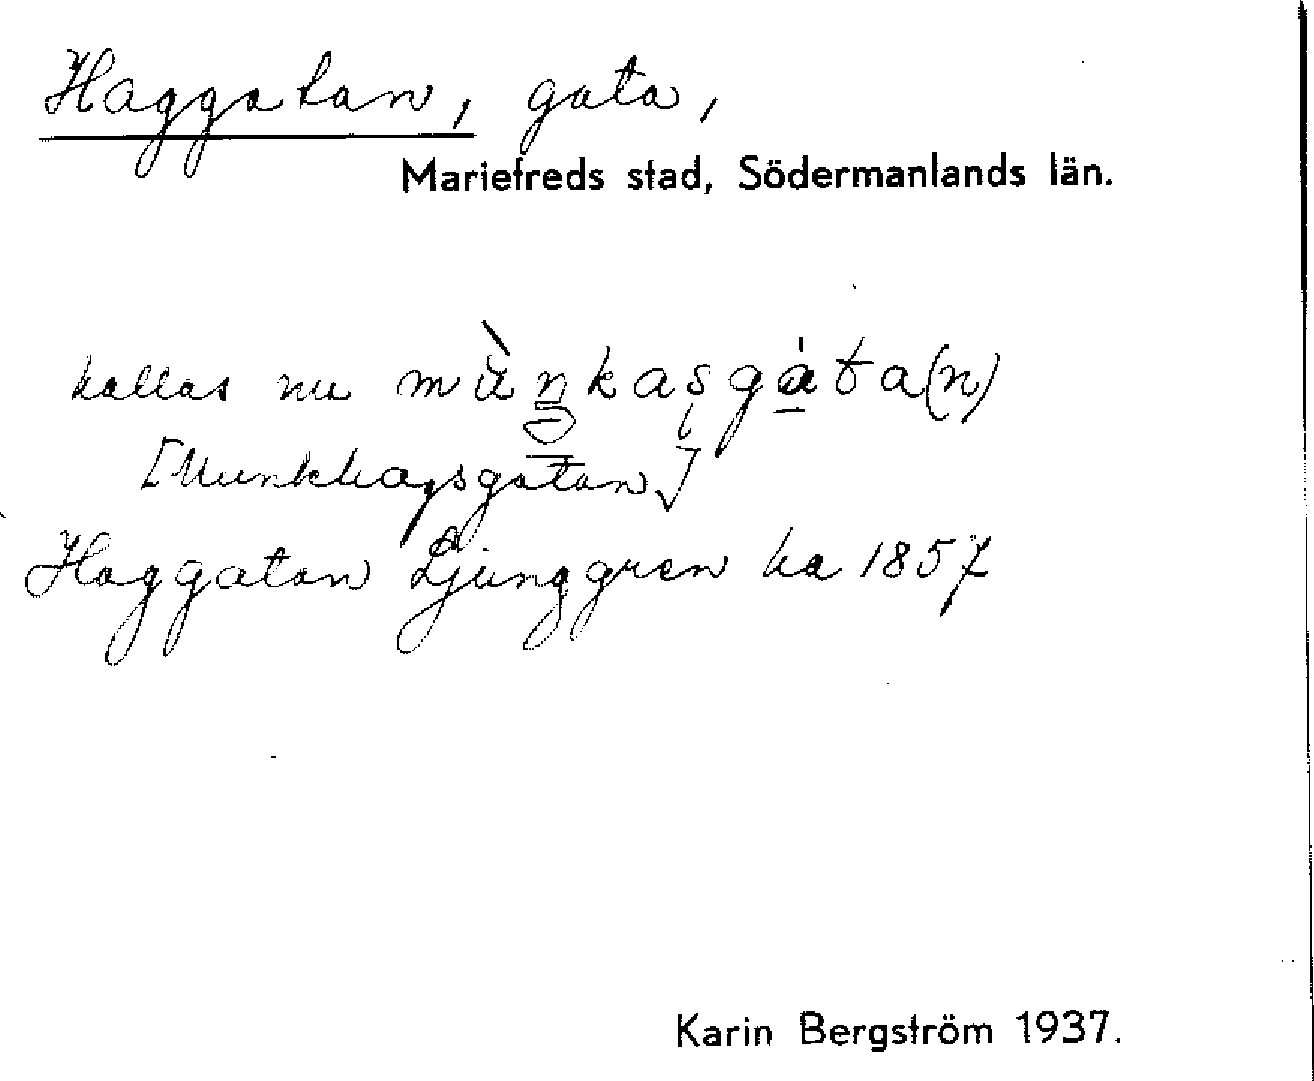 Haggatan, gata,
Mariefreds stad, Södermanlands län.
kallas nu mùnkasgáta(n)
[Munkhagsgatan]
Haggatan Ljunggren ka 1857
Karin Bergström 1937.